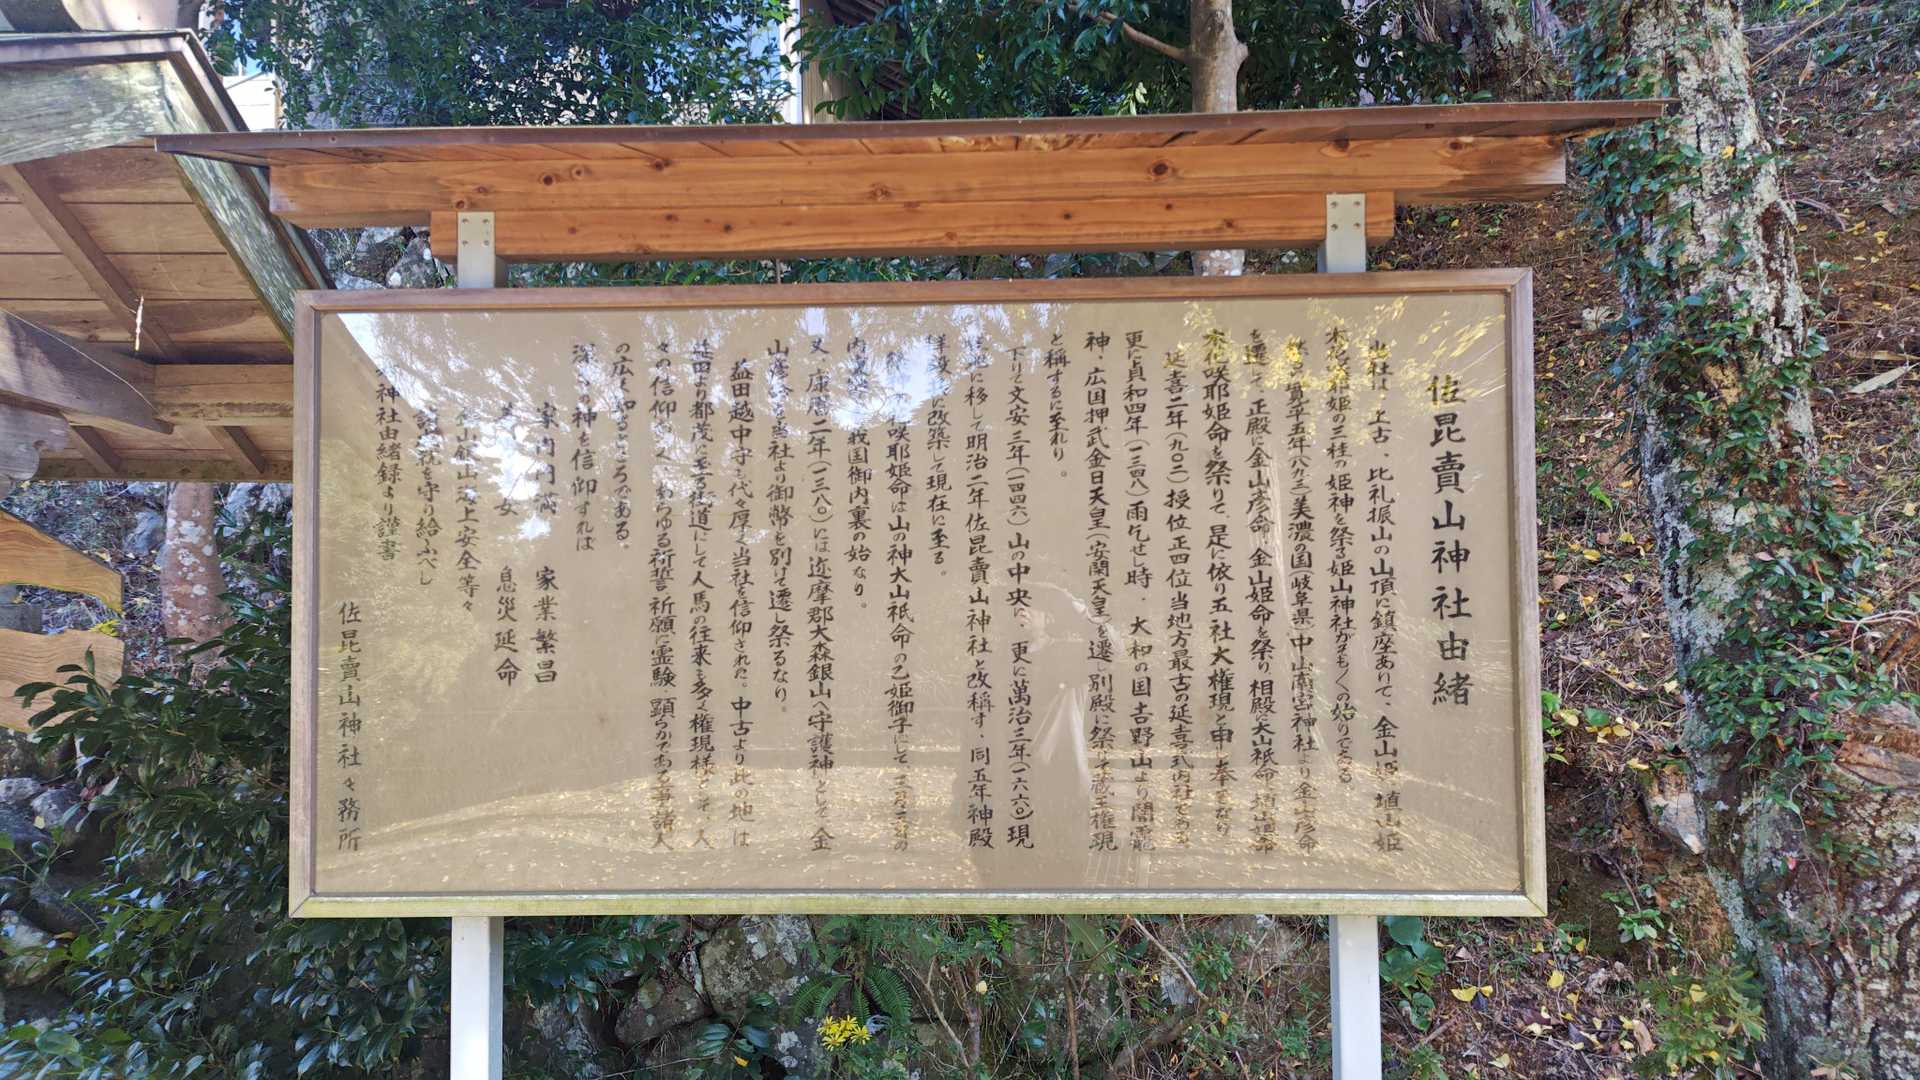 佐毘賣山神社由緒
社は、上古、比礼振山の山頂に鎮座ありて、金山姫 埴山姫
木花咲耶姫の三柱の姫神を祭る姫山神社がそも〱の始りである
寛平五年(八九三)美濃の国(岐阜県)中山南宮神社より金山彦命
を遷して正殿に金山彦命、金山姫命を祭り、相殿に大山祇命、埴山姫命
木花咲耶姫命を祭りて、是に依り五社大権現と申し奉る
延喜二年(九〇二)授位正四位当地方最古の延喜式内社である
更に貞和四年(一三四八)雨乞せし時、大和の国吉野山より闇靇
神、広国押武金日天皇(安閑天皇)を遷し別殿に祭して蔵王権現
と稱するに至れり。
下りて文安三年(一四四六)山の中央に、更に萬治三年(一六六〇)現
に移して明治二年佐毘賣山神社と改稱す、同五年神殿
拝殿 に改築して現在に至る。
咲耶姫命は山の神大山祇命の乙姫御子にして
我国御内裏の始なり。
又、康暦二年(一三八〇)には迩摩郡大森銀山へ守護神として金
山彦命を当社より御幣を別けて遷し祭るなり。
益田越中守も代々厚く当社を信仰された。中古より此の地は
益田より都茂に至る街道にして人馬の往来も多く権現様と 人
々の信仰 く、あらゆる祈誓、祈願に霊験、顕らかである事諸人
の広く知るところである。
深く の神を信仰すれば
家内円満 家業繁昌
女 息災延命
山鉱山海上安全等々
を守り給ふべし
神社由緒録より謹書
佐毘賣山神社々務所